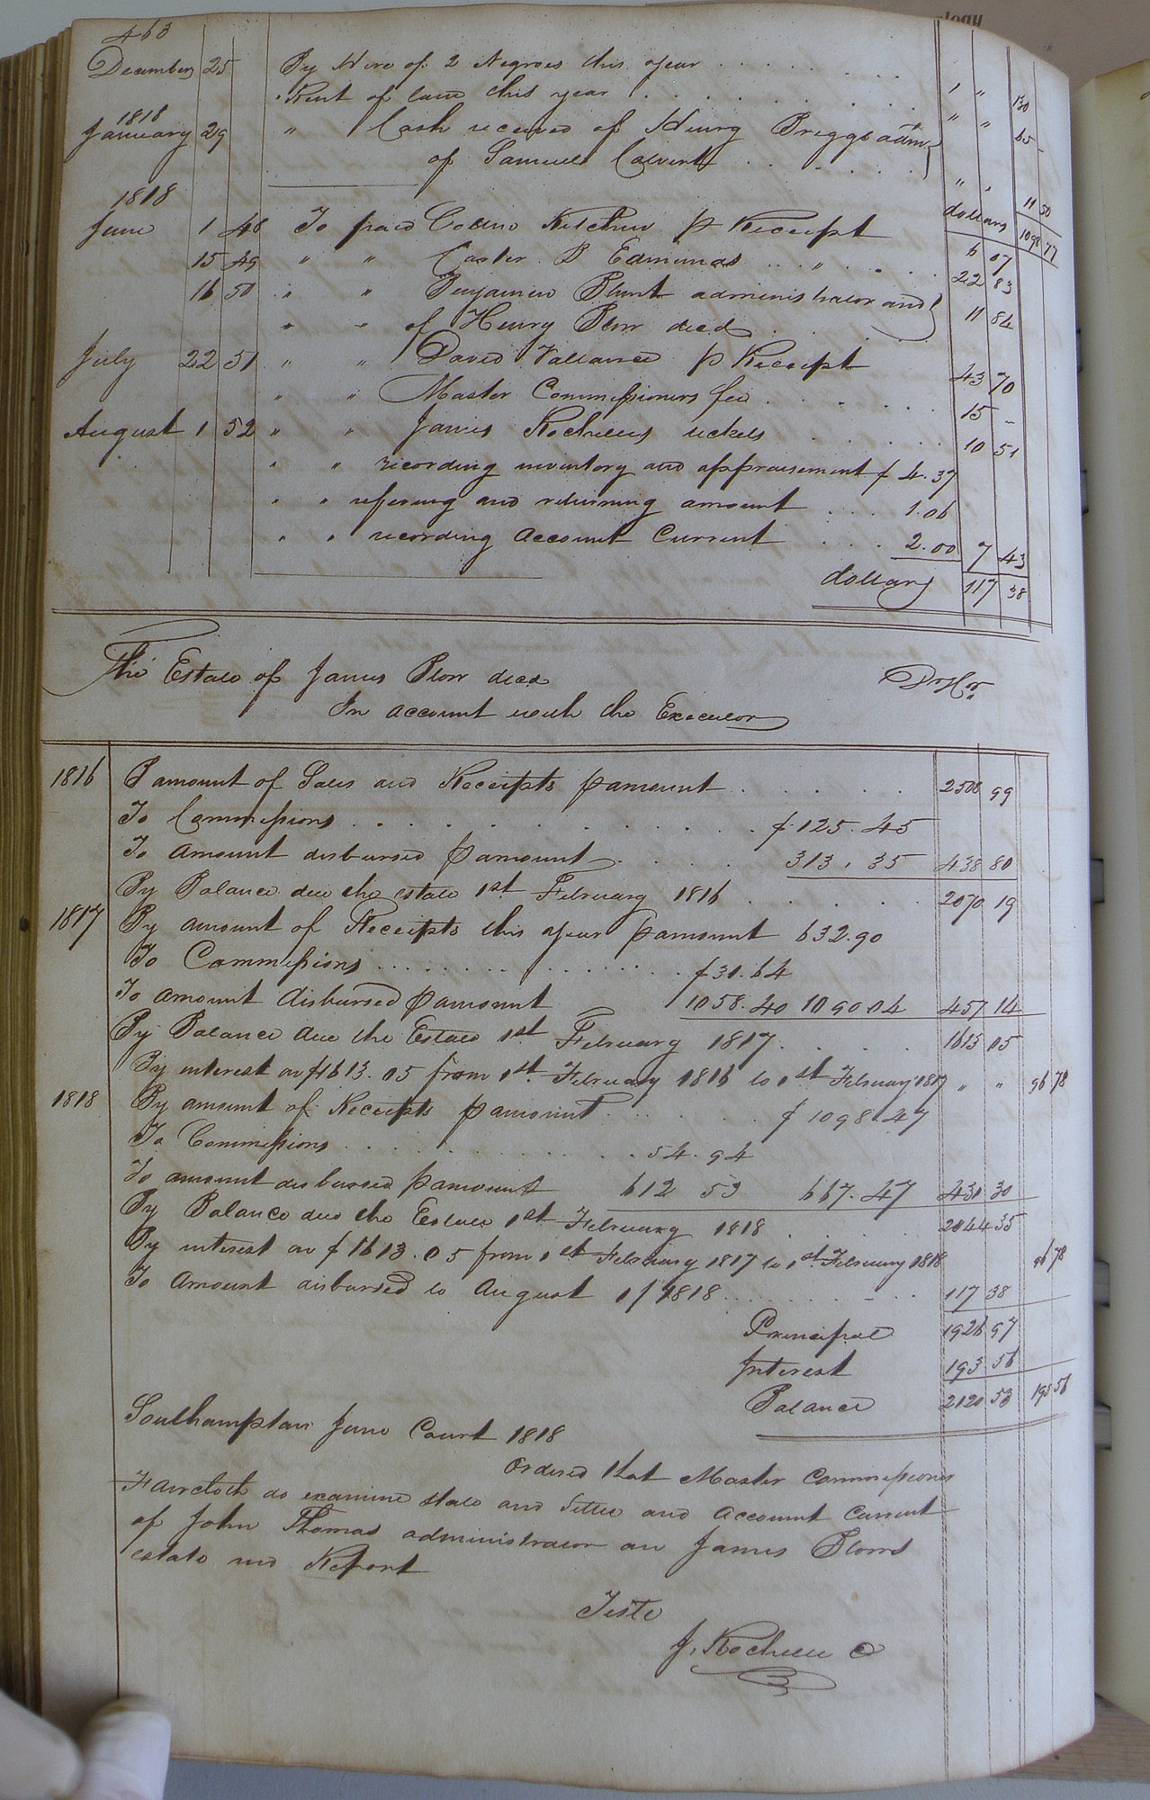 463
December 25 By Hire of 2 Negroes this year . . . . . . . . 1 " 130
" Rent of land this year . . . . . . . . " " 65 -
1818
January 29 " Cash received of Henry Briggs adm
of Samuel Calvert . . . . . . " " 11 50
dollars 1098 77
1818
June 1 48 To paid Collin Kitchen p Receipt 6 07
15 49 " " Carter B Edmunds . . " . . . 22 83
16 50 " " Benjamin Blunt administrator and
" " of Henry Blow decd . . 11 84
July 22 51 " " David Vallance p Receipt 43 70
" " Master Commissioners fee . . . . . . 15 -
August 1 52 " " James Rochelles tickets . . . . . 10 51
" " recording inventory and appraisement $ 4.37
" " refering and returning amount . . . 1.06
" " recording Account Current . . . 2.00 7 43
dollars 117 38
The Estate of James Blow decd
In account with the Executor
1816 B amount of Sales and Receipts p amount . . . . . . 2508 99
To Commissions . . . . . . . . . . . $ 125.45
To Amount disbursed p amount . . . . 313.35 438 80
By Balance due the estate 1st February 1816 . . . . . . 2070 19
1817 By amount of Receipts this year p amount 632.90
To Commissions . . . . . . . . . . . . . $ 31.64
To amount disbursed p amount 1058.40 1090 04 457 14
By Balance due the Estate 1st February 1817 . . . . . 1613 05
By interest on $1613.05 from 1st February 1816 to 1st February 1817 " " 96 78
1818 By amount of Receipts p amount . . . . . $ 1098.47
To Commissions . . . . . . . . . . 54.94
To amount disbursed p amount 612 53 667.47 431 30
By Balance due the Estate 1st February 1818 . . . . . 2044 35
By interest on $ 1613.05 from 1st February 1817 to 1st February 1818 96 78
To Amount disbursed to August 1/1818 . . . . . . . . 117 38
Principal 1926 97
Interest 193 56
Balance 2120 53 193 56
Southampton June Court 1818
Ordered that Master Commissioner
Faircloth do examine state and settle and Account Current
of John Thomas administrator on James Blows
estate and Report
Teste
J. Rochelle C